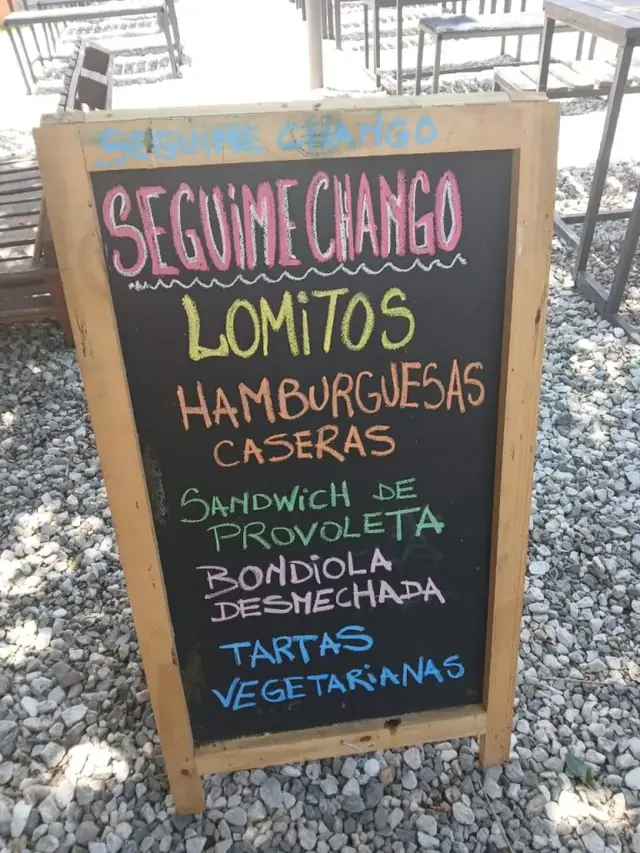 SEGUIME CHANGO
SEGUIME CHANGO
LOMITOS
HAMBURGUESAS
CASERAS
SANDWICH DE
PROVOLETA
BONDIOLA
DESMECHADA
TARTAS
VEGETARIANAS